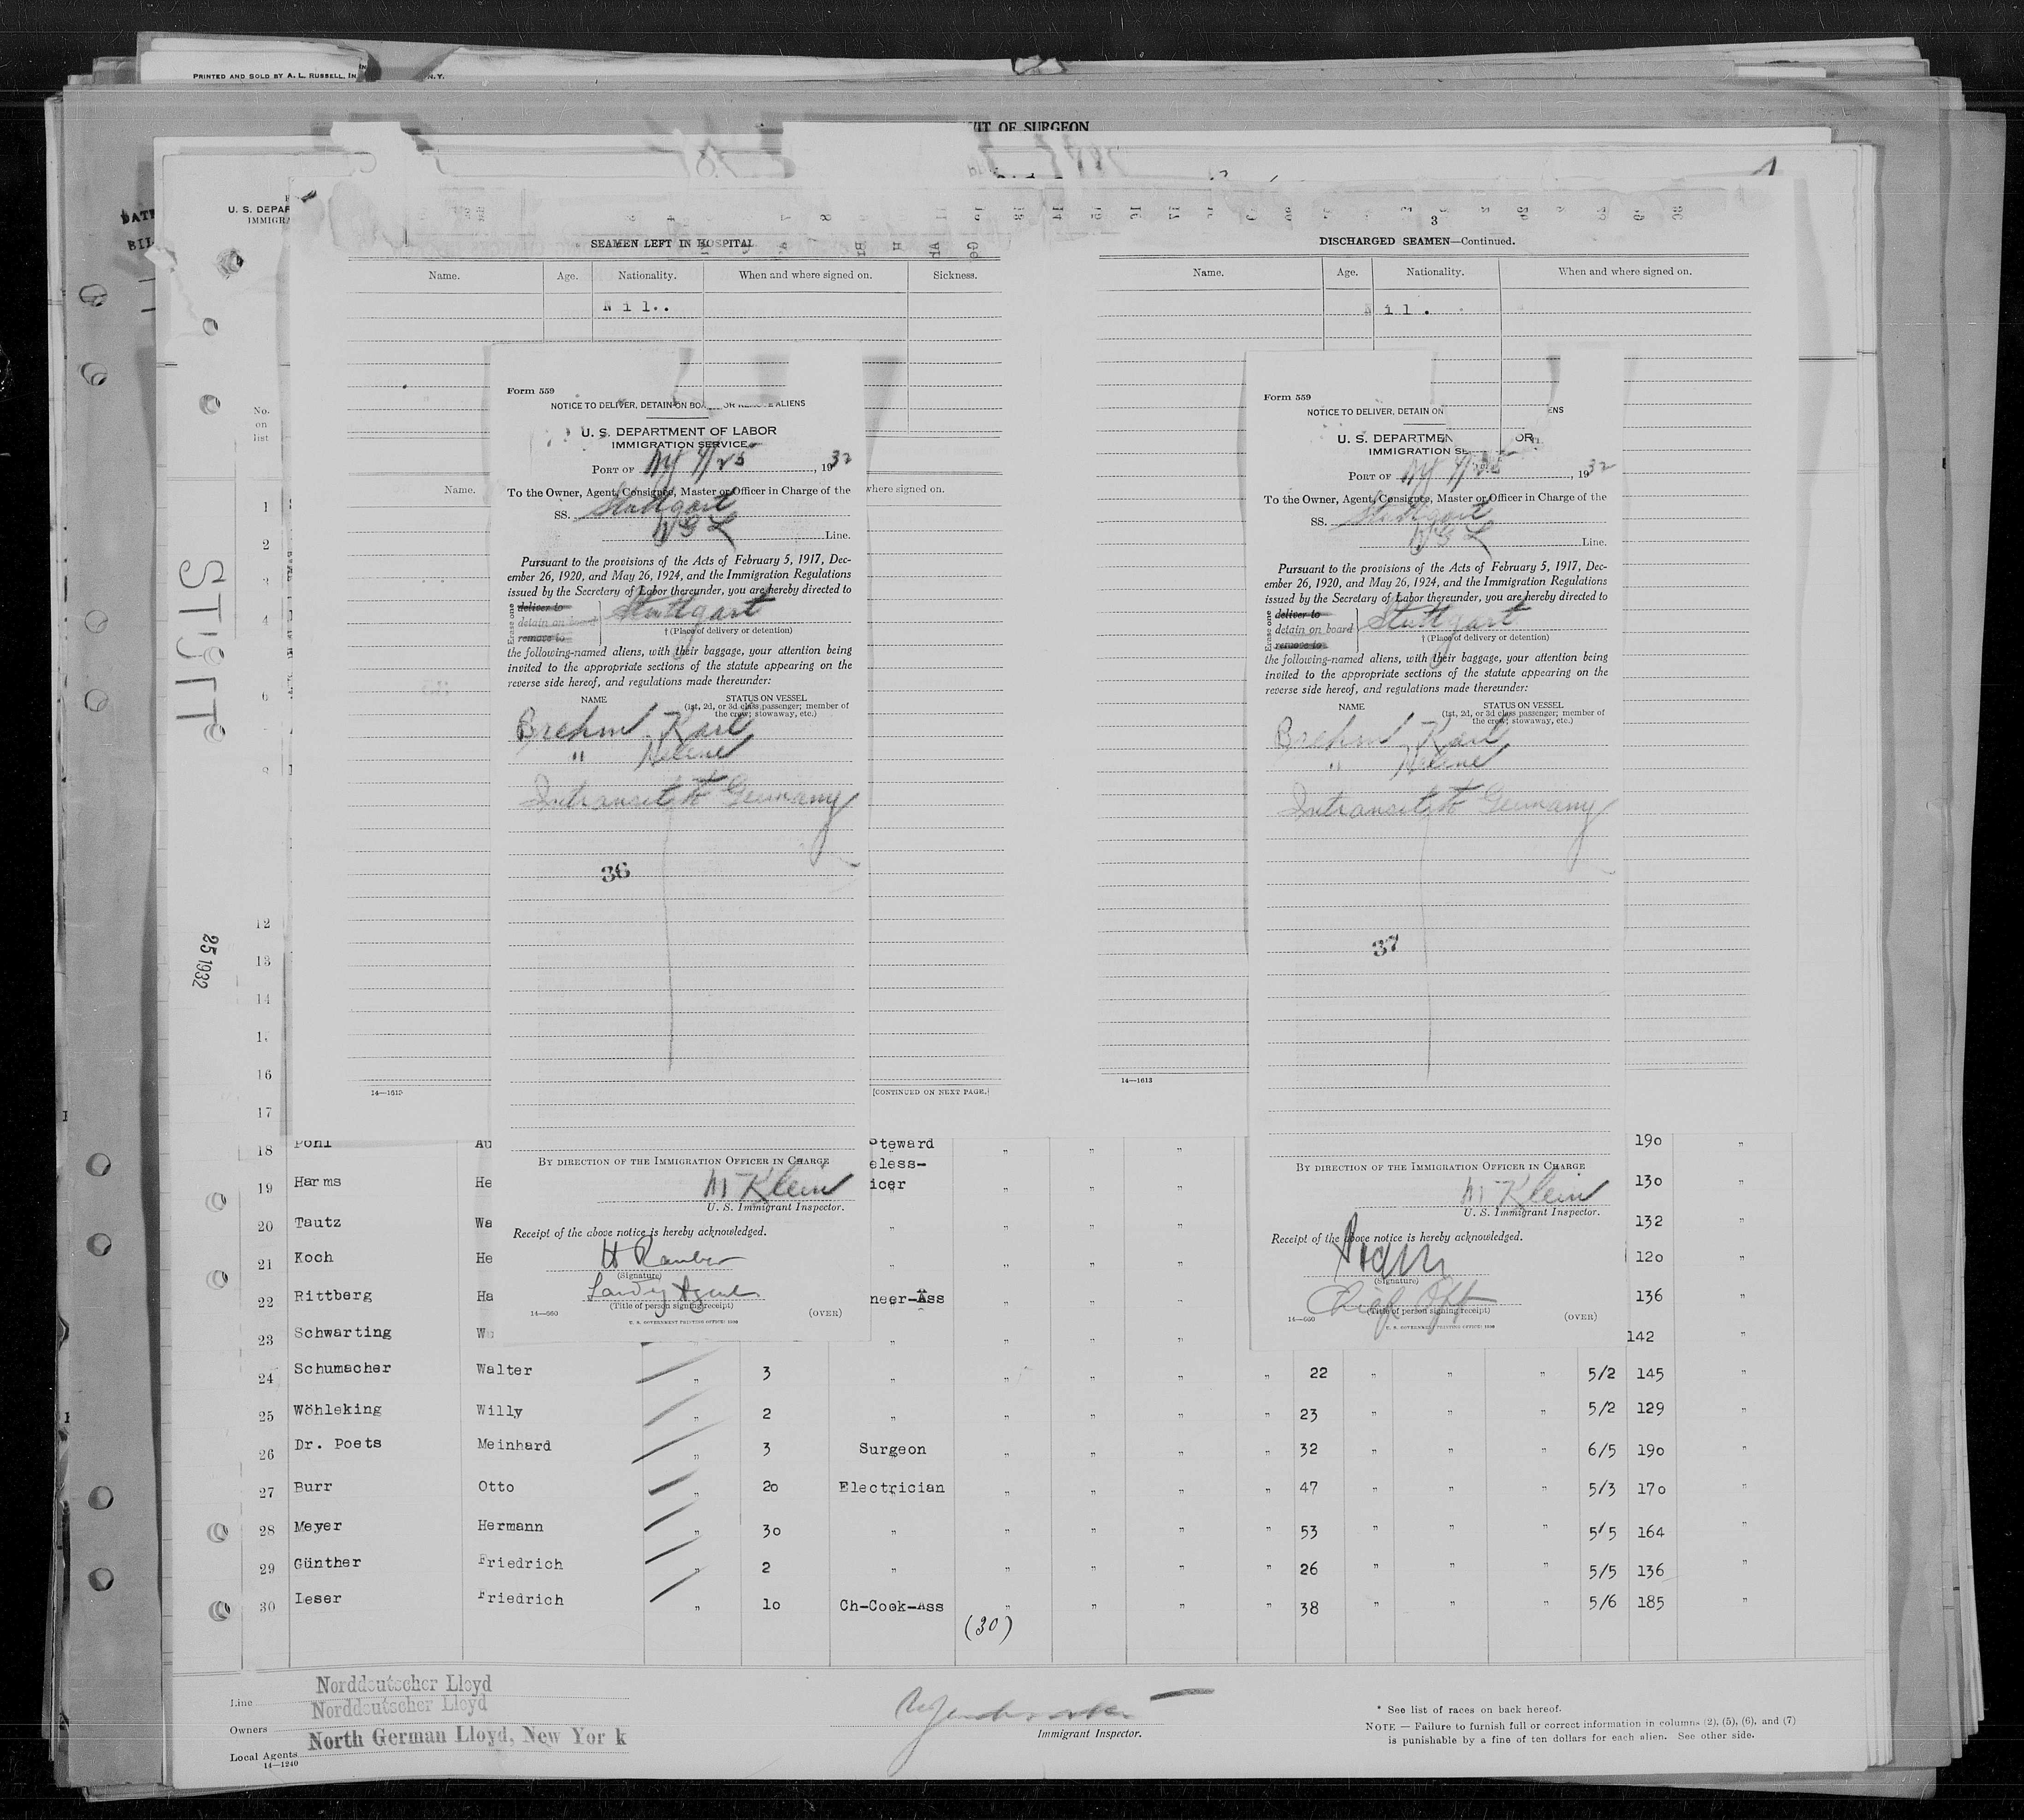 PRINTED AND SOLD BY A. L. RUSSELL, IN
N.Y.
OF SURGEON
U. S. DEPAR
IMMIGRA
DATE
BIL
No.
on
list
STUTT
25 1932
SEAMEN LEFT IN HOSPITAL
Name. Age. Nationality. When and where signed on. Sickness.
Nil..
Name.
where signed on.
14—1613
[CONTINUED ON NEXT PAGE.]
3
DISCHARGED SEAMEN—Continued.
Name. Age. Nationality. When and where signed on.
Nil.
14—1613
Form 559
NOTICE TO DELIVER, DETAIN ON BOA OR REMOVE ALIENS
U. S. DEPARTMENT OF LABOR
IMMIGRATION SERVICE
PORT OF NY 4/25, 1932
To the Owner, Agent, Consignee, Master or Officer in Charge of the
SS. Stuttgart
NGL Line.
Pursuant to the provisions of the Acts of February 5, 1917, Dec-
ember 26, 1920, and May 26, 1924, and the Immigration Regulations
issued by the Secretary of Labor thereunder, you are hereby directed to
Erase one
deliver to
detain on board Stuttgart
remove to
†(Place of delivery or detention)
the following-named aliens, with their baggage, your attention being
invited to the appropriate sections of the statute appearing on the
reverse side hereof, and regulations made thereunder:
NAME STATUS ON VESSEL
(1st, 2d, or 3d class passenger; member of
the crew; stowaway, etc.)
Brehm Karl
" Helene
Intransit to Germany
36
BY DIRECTION OF THE IMMIGRATION OFFICER IN CHARGE
M Klein
U. S. Immigrant Inspector.
Receipt of the above notice is hereby acknowledged.
(Signature)
(Title of person signing receipt)
14—560 (OVER)
U. S. GOVERNMENT PRINTING OFFICE:
Form 559
NOTICE TO DELIVER, DETAIN ON ENS
U. S. DEPARTMEN OR
IMMIGRATION SE
PORT OF NY 4/25, 1932
To the Owner, Agent, Consignee, Master or Officer in Charge of the
SS. Stuttgart
NGL Line.
Pursuant to the provisions of the Acts of February 5, 1917, Dec-
ember 26, 1920, and May 26, 1924, and the Immigration Regulations
issued by the Secretary of Labor thereunder, you are hereby directed to
Erase one
deliver to
detain on board Stuttgart
remove to
†(Place of delivery or detention)
the following-named aliens, with their baggage, your attention being
invited to the appropriate sections of the statute appearing on the
reverse side hereof, and regulations made thereunder:
NAME STATUS ON VESSEL
(1st, 2d, or 3d class passenger; member of
the crew; stowaway, etc.)
Brehm Karl
" Helene
Intransit to Germany
37
BY DIRECTION OF THE IMMIGRATION OFFICER IN CHARGE
M Klein
U. S. Immigrant Inspector.
Receipt of the above notice is hereby acknowledged.
(Signature)
(Title of person signing receipt)
14—560 (OVER)
U. S. GOVERNMENT PRINTING OFFICE:
1
2
3
4
6
8
12
13
14
16
17
18 Pohl Au teward " " " 190 "
eless-
19 Harms He icer " " " 130 "
20 Tautz Wa " " " " 132 "
21 Koch He " " " " 120 "
22 Rittberg Ha neer-Ass " " " 136 "
23 Schwarting W " " " " 142 "
24 Schumacher Walter " 3 " " " " " 22 " " " 5/2 145 "
25 Wöhleking Willy " 2 " " " " " 23 " " " 5/2 129 "
26 Dr. Poets Meinhard " 3 Surgeon " " " " 32 " " " 6/5 190 "
27 Burr Otto " 20 Electrician " " " " 47 " " " 5/3 170 "
28 Meyer Hermann " 30 " " " " " 53 " " " 5/5 164 "
29 Günther Friedrich " 2 " " " " " 26 " " " 5/5 136 "
30 Leser Friedrich " 10 Ch-Cook-Ass " " " " 38 " " " 5/6 185 "
(30)
Line Norddeutscher Lloyd
Norddeutscher Lloyd
Owners
North German Lloyd, New York
Local Agents
14—1240
Immigrant Inspector.
* See list of races on back hereof.
NOTE — Failure to furnish full or correct information in columns (2), (5), (6), and (7)
is punishable by a fine of ten dollars for each alien. See other side.